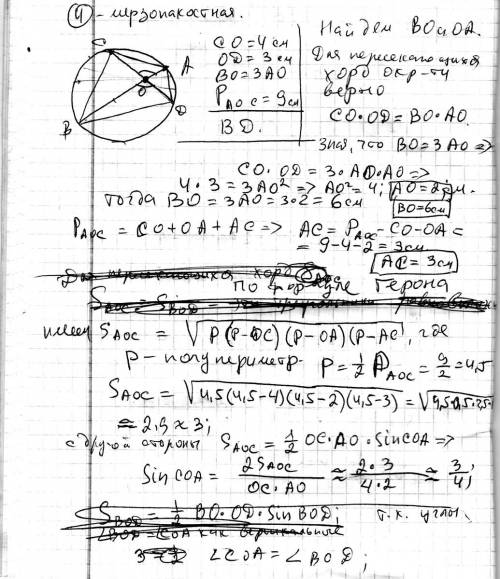 4) - мрзопакостная.
C
A
O
D
B
CO = 4 см
OD = 3 см
BO = 3AO
P AOC = 9 см
BD.
Найдем BO и OA.
Для пересекающихся
хорд окр-ти
верно
CO·OD = BO·AO.
Зная, что BO = 3AO =>
CO·OD = 3·AO·AO =>
4·3 = 3AO² => AO² = 4; AO = 2см.
тогда BO = 3AO = 3·2 = 6 см
BO = 6 см
P AOC = CO + OA + AC => AC = P AOC - CO - OA =
= 9 - 4 - 2 = 3 см
AC = 3 см
Для пересекающихся хорд
по формуле Герона
S AOC = S BOD =
имеем S AOC = √P(P-OC)(P-OA)(P-AC), где
P - полупериметр. P = 1/2 P AOC = 9/2 = 4,5
S AOC = √4,5(4,5-4)(4,5-2)(4,5-3) = √4,5·0,5·2,5·
≈ 2,9 ≈ 3;
с другой стороны S AOC = 1/2 OC·AO·sin COA =>
Sin COA = 2S AOC / OC·AO ≈ 2·3 / 4·2 ≈ 3/4;
S BOD = 1/2 BO·OD·Sin BOD; т.к. углы
∠BOD = COA как вертикальные
∠COA = ∠BOD;